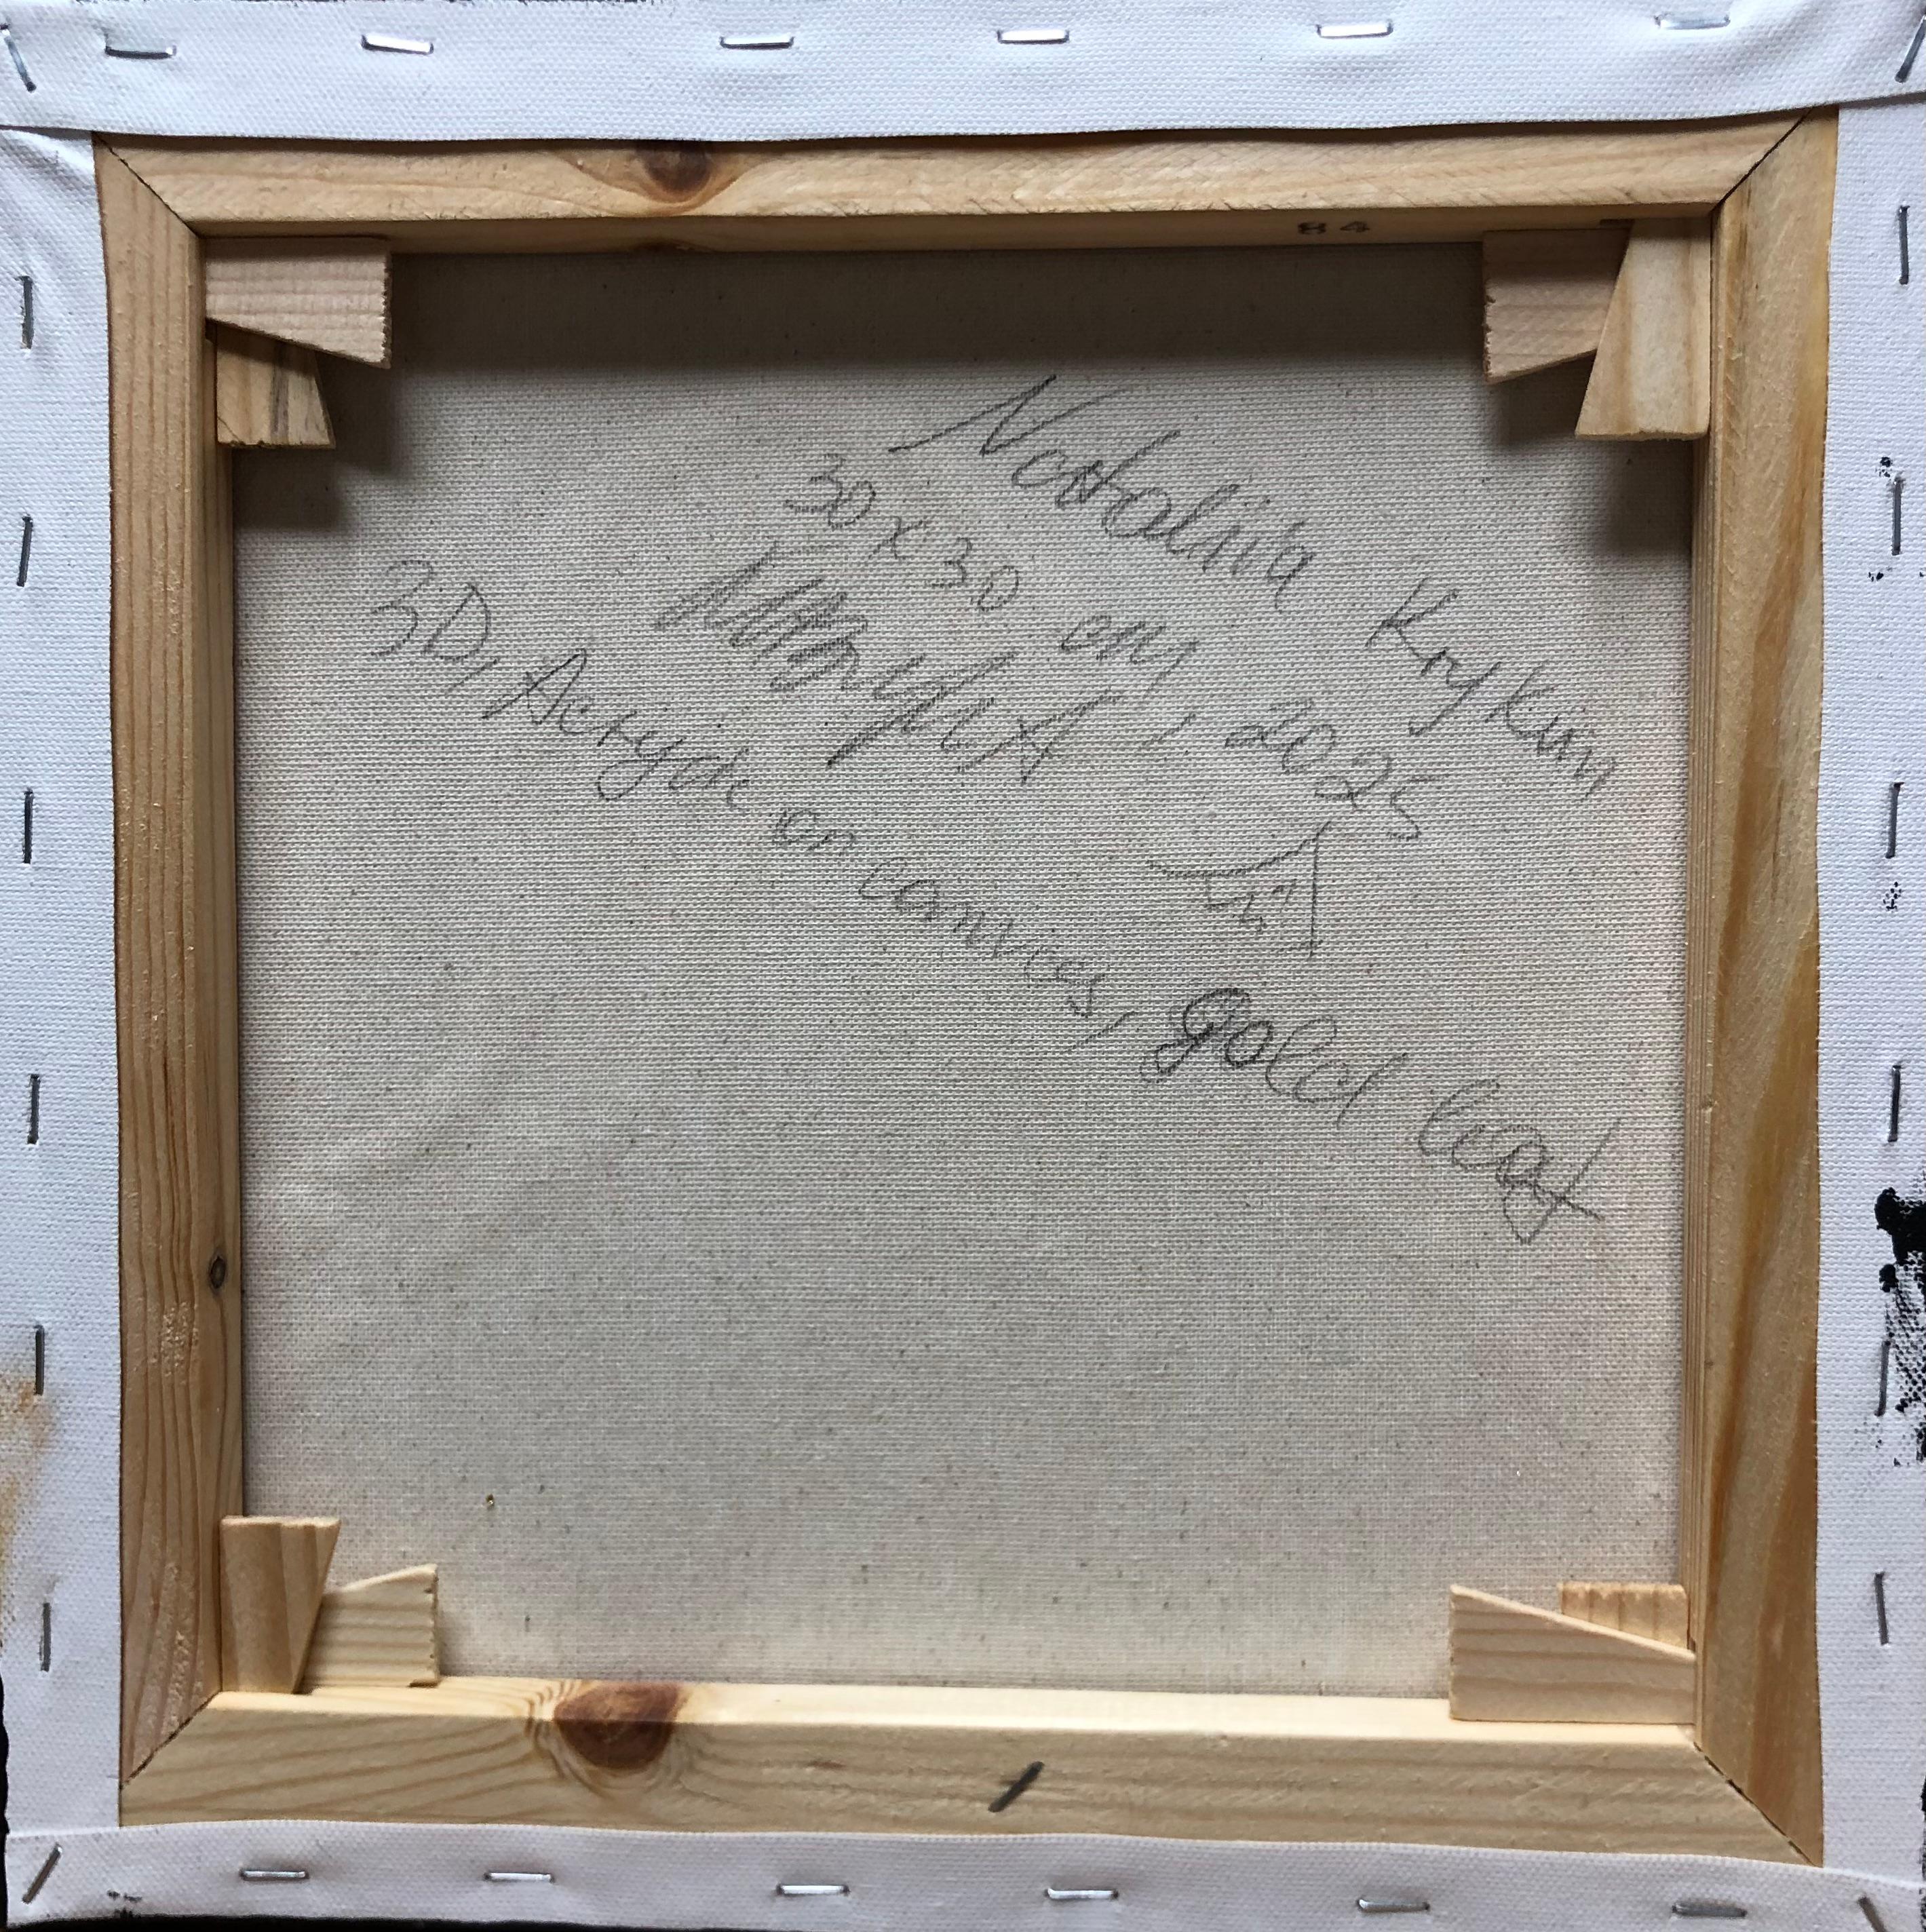 84
Nataliia Krykun
30x30 cm, 2025
3D, Acrylic on canvas, gold leaf